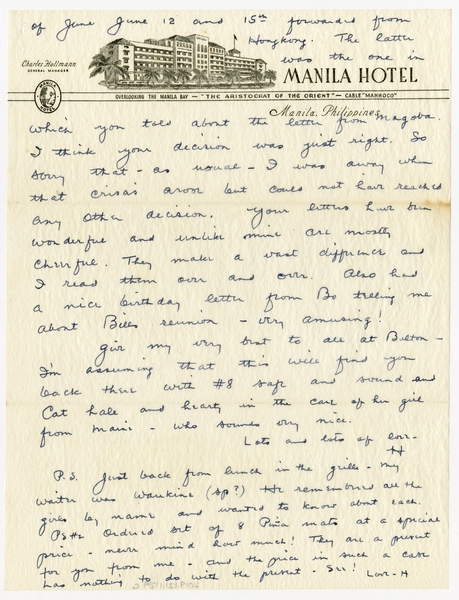 of June June 12 and 15th forwarded from
Hongkong. The latter
was the one in
Charles Hollmann
GENERAL MANAGER
MANILA HOTEL
MANILA HOTEL
OVERLOOKING THE MANILA BAY — "THE ARISTOCRAT OF THE ORIENT" — CABLE "MANHOCO"
Manila, Philippines
which you told about the letter from Magoba.
I think your decision was just right. So
sorry that - as usual - I was away when
that crisis arose but could not have reached
any other decision. Your letters have been
wonderful and unlike mine are mostly
cheerful. They make a vast difference and
I read them over and over. Also had
a nice birthday letter from Bo telling me
about Bills reunion - very amusing!
Give my very best to all at Belton -
I'm assuming that this will find you
back there with #8 safe and sound and
Cat hale and hearty in the care of her girl
from Maine - who sounds very nice.
Lots and lots of love -
H
P.S. Just back from lunch in the grille - my
waiter was Waukine (sp?) He remembered all the
girls by name and wanted to know about each.
PS #2 Ordered set of 8 Piña mats at a special
price - never mind how much! They are a present
for you from me - and the price in such a case
has nothing to do with the present - See! Love - H